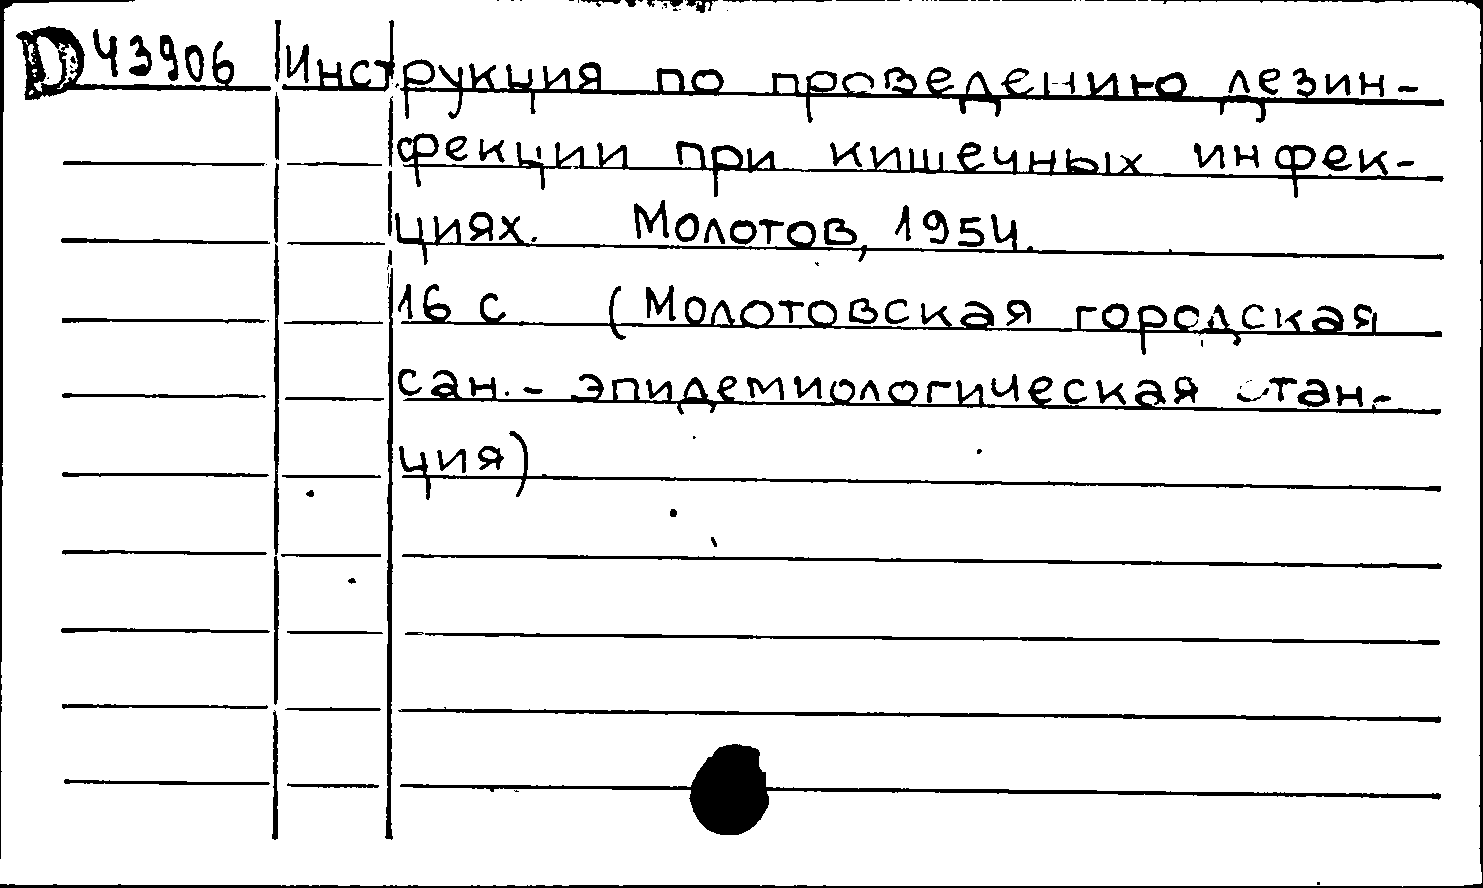 D 43906 Инструкция по проведению дезин-
фекции при кишечных инфек-
циях. Молотов, 1954.
16 с (Молотовская городская
сан.-эпидемиологическая стан-
ция)